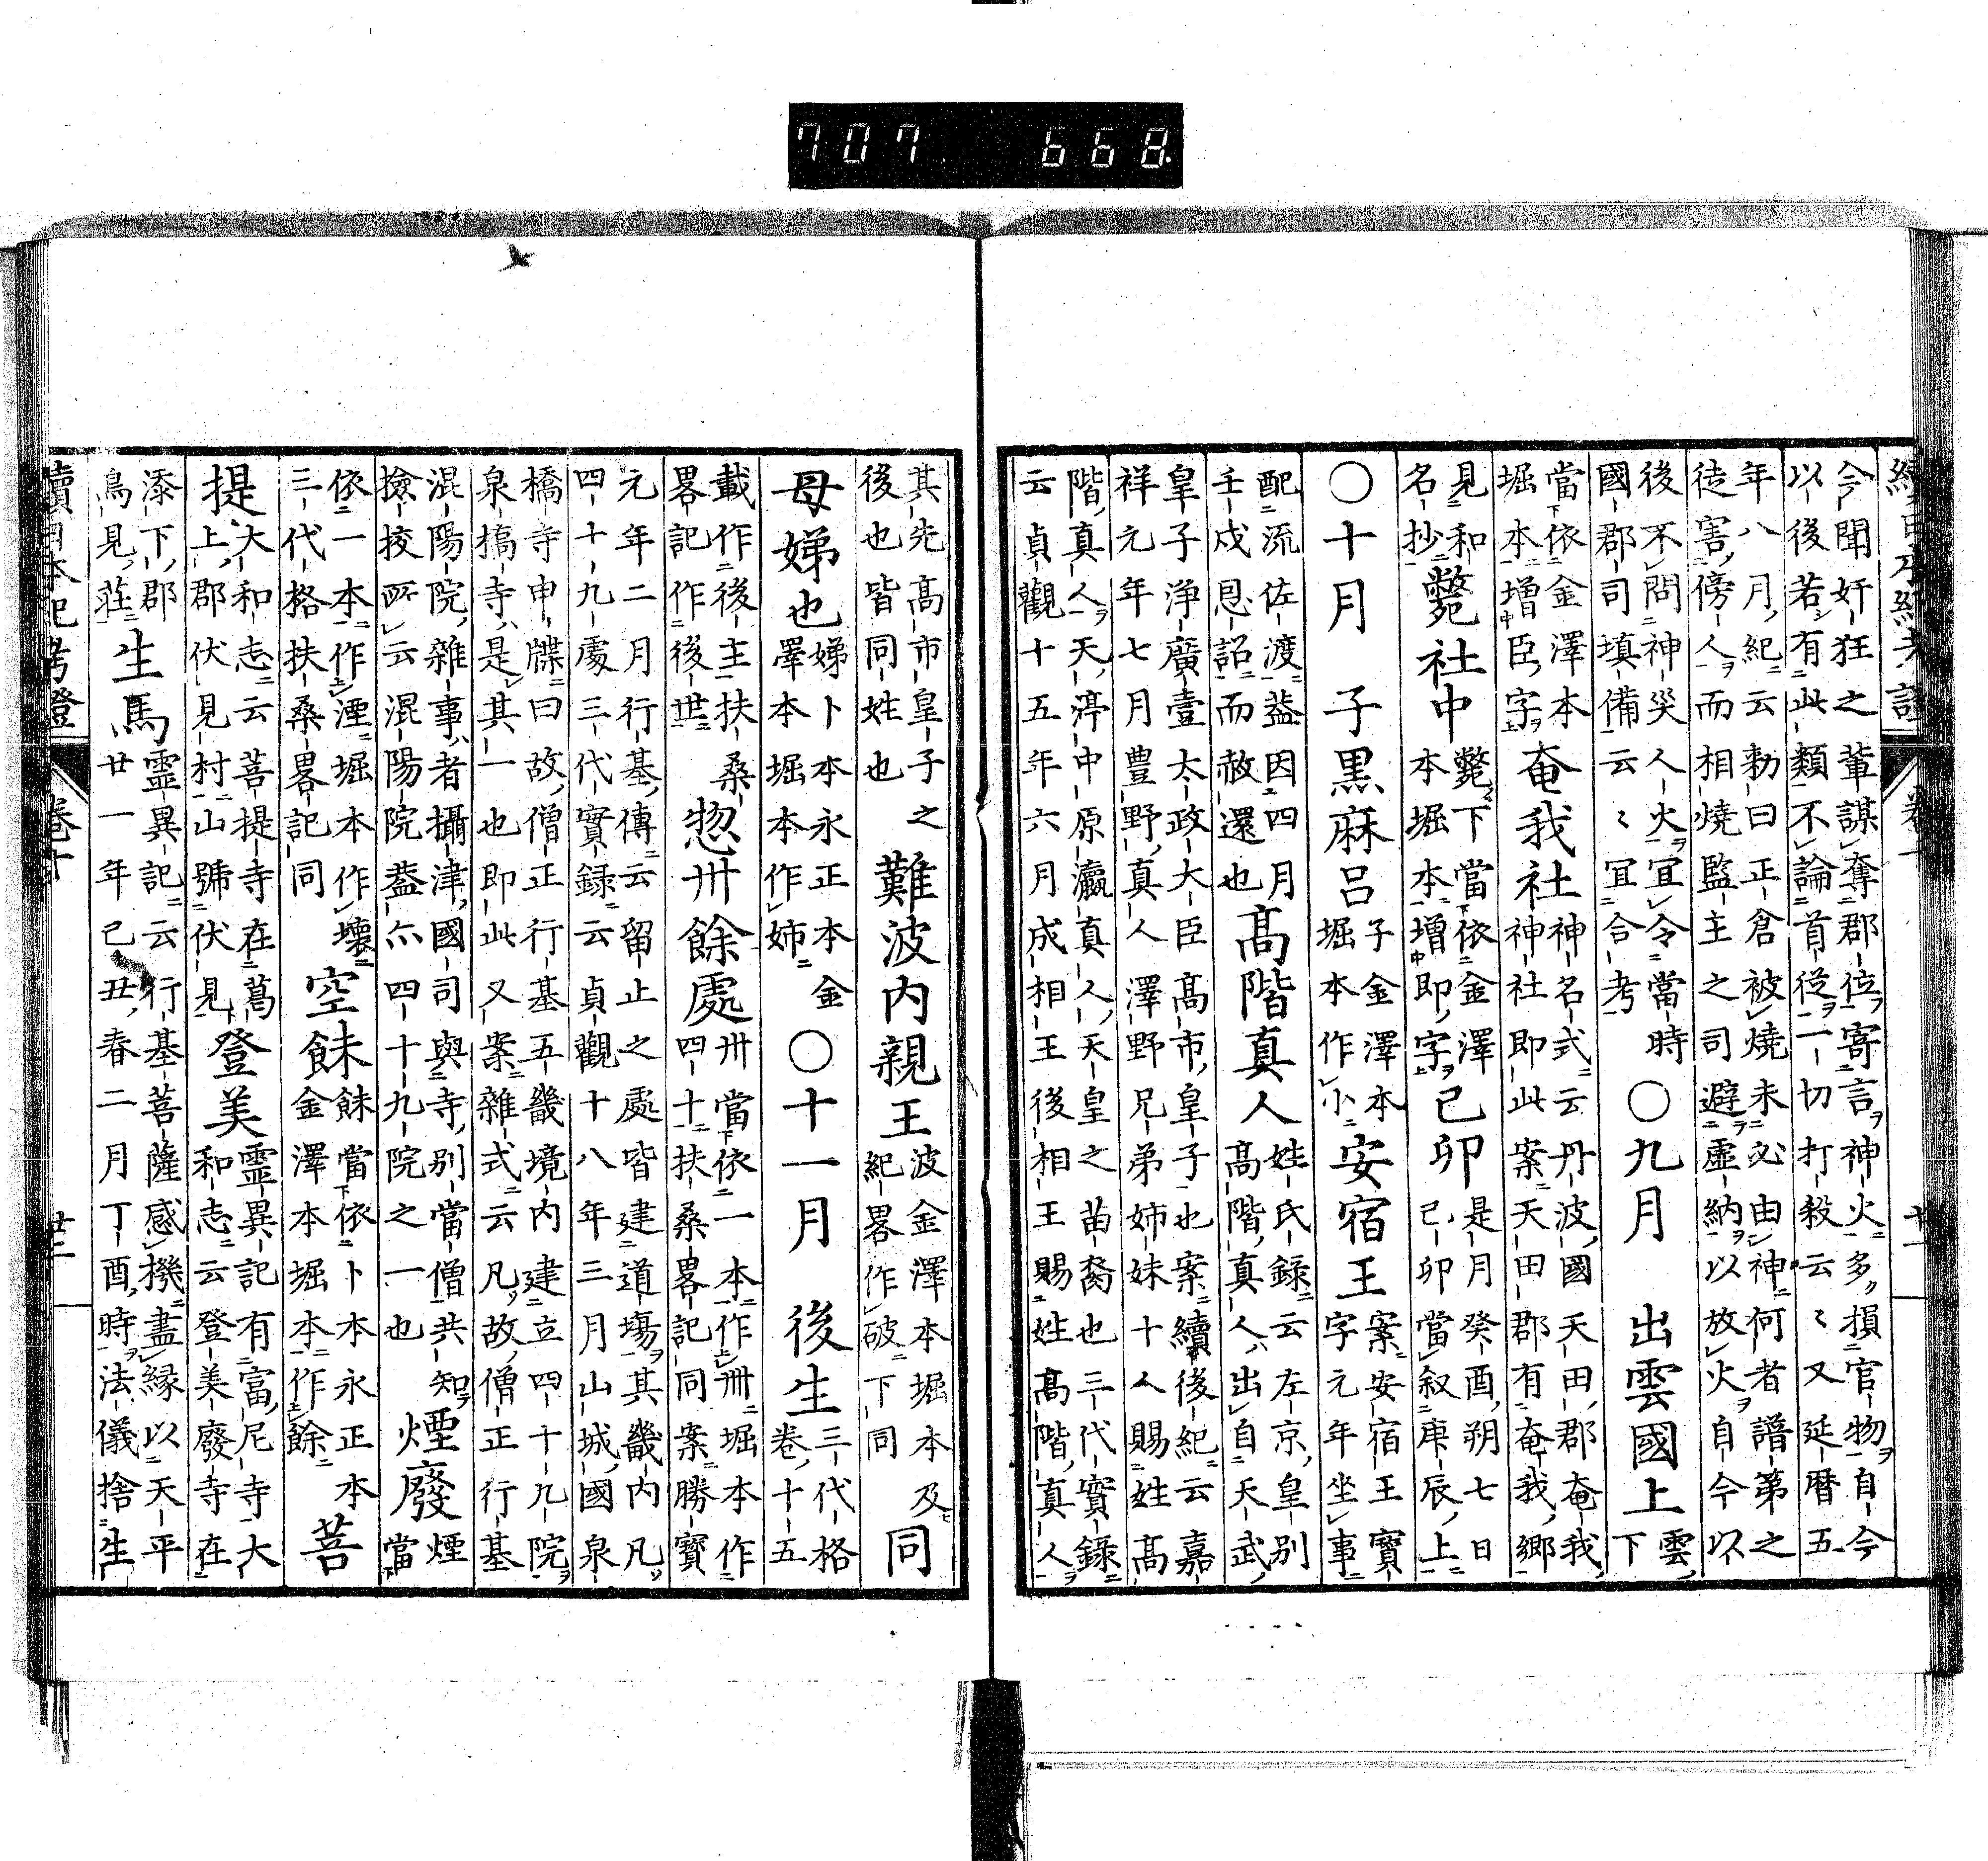 707 668
今聞奸狂之輩謀奪郡位寄言神火多損官物自今
以後若有此類不論首從一切打殺云〻又延曆五
年八月紀云勅曰正倉被燒未必由神何者譜第之
徒害傍人而相燒監主之司避虛納以放火自今以
後不問神災人火宜令當時
國郡司填備云〻宜合考
○九月 出雲國上
雲下
當依金澤本
堀本增臣字
奄我社
神名式云丹波國天田郡奄我
神社即此案天田郡有奄我鄉
見和
名抄
斃社中
斃下當依金澤
本堀本增即字
己卯
是月癸酉朔七日
己卯當叙庚辰上
○十月 子黑麻呂
子金澤本
堀本作小
安宿王
案安宿王寶
字元年坐事
配流佐渡蓋因四月
壬戌恩詔而赦還也
高階真人
姓氏錄云左京皇別
高階真人出自天武
皇子淨廣壹太政大臣高市皇子也案續後紀云嘉
祥元年七月豐野真人澤野兄弟姉妹十人賜姓高
階真人天渟中原瀛真人天皇之苗裔也三代實錄
云貞觀十五年六月成相王後相王賜姓高階真人
其先高市皇子之
後也皆同姓也
難波內親王
波金澤本堀本及
紀畧作破下同
同
母娣也
娣卜本永正本金
澤本堀本作姉
○十一月 後生
三代格
卷十五
載作後主扶桑
畧記作後世
惣卅餘處
卅當依一本作卌堀本作
四十扶桑畧記同案勝寶
元年二月行基傳云留止之處皆建道場其畿內凡
四十九處三代實錄云貞觀十八年三月山城國泉
橋寺申牒曰故僧正行基五畿境內建立四十九院
泉橋寺是其一也即此又案雜式云凡故僧正行基
混陽院雜事者攝津國司與寺別當僧共知
撿挍所云混陽院蓋亦四十九院之一也
煙廢
煙當
依一本作湮堀本作壞
三代格扶桑畧記同
空餗
餗當依卜本永正本
金澤本堀本作餘
菩
提
大和志云菩提寺在葛
上郡伏見村山號伏見
登美
靈異記有富尼寺大
和志云登美廢寺在
添下郡
鳥見莊
生馬
靈異記云行基菩薩感機盡緣以天平
廿一年己丑春二月丁酉時法儀捨生
續日本紀考證 卷十 廿二